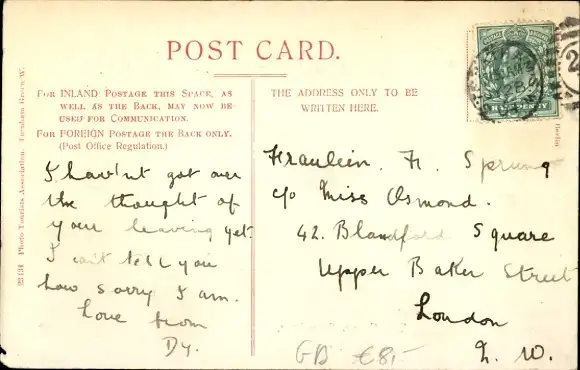 POST CARD.
FOR INLAND POSTAGE THIS SPACE, AS
WELL AS THE BACK, MAY NOW BE
USED FOR COMMUNICATION.
FOR FOREIGN POSTAGE THE BACK ONLY.
(Post Office Regulation.)
THE ADDRESS ONLY TO BE
WRITTEN HERE.
I hav'nt got over
the thought of
your leaving yet.
I can't tell you
how sorry I am.
Love from
Dy.
Fraulein. H. Sprung
c/o Miss Osmond.
42. Blandford Square
Upper Baker Street
London
N. W.
GB €8,-
22134 Photo Tourists Association. Turnham Green W.
Berlin
HALFPENNY
2